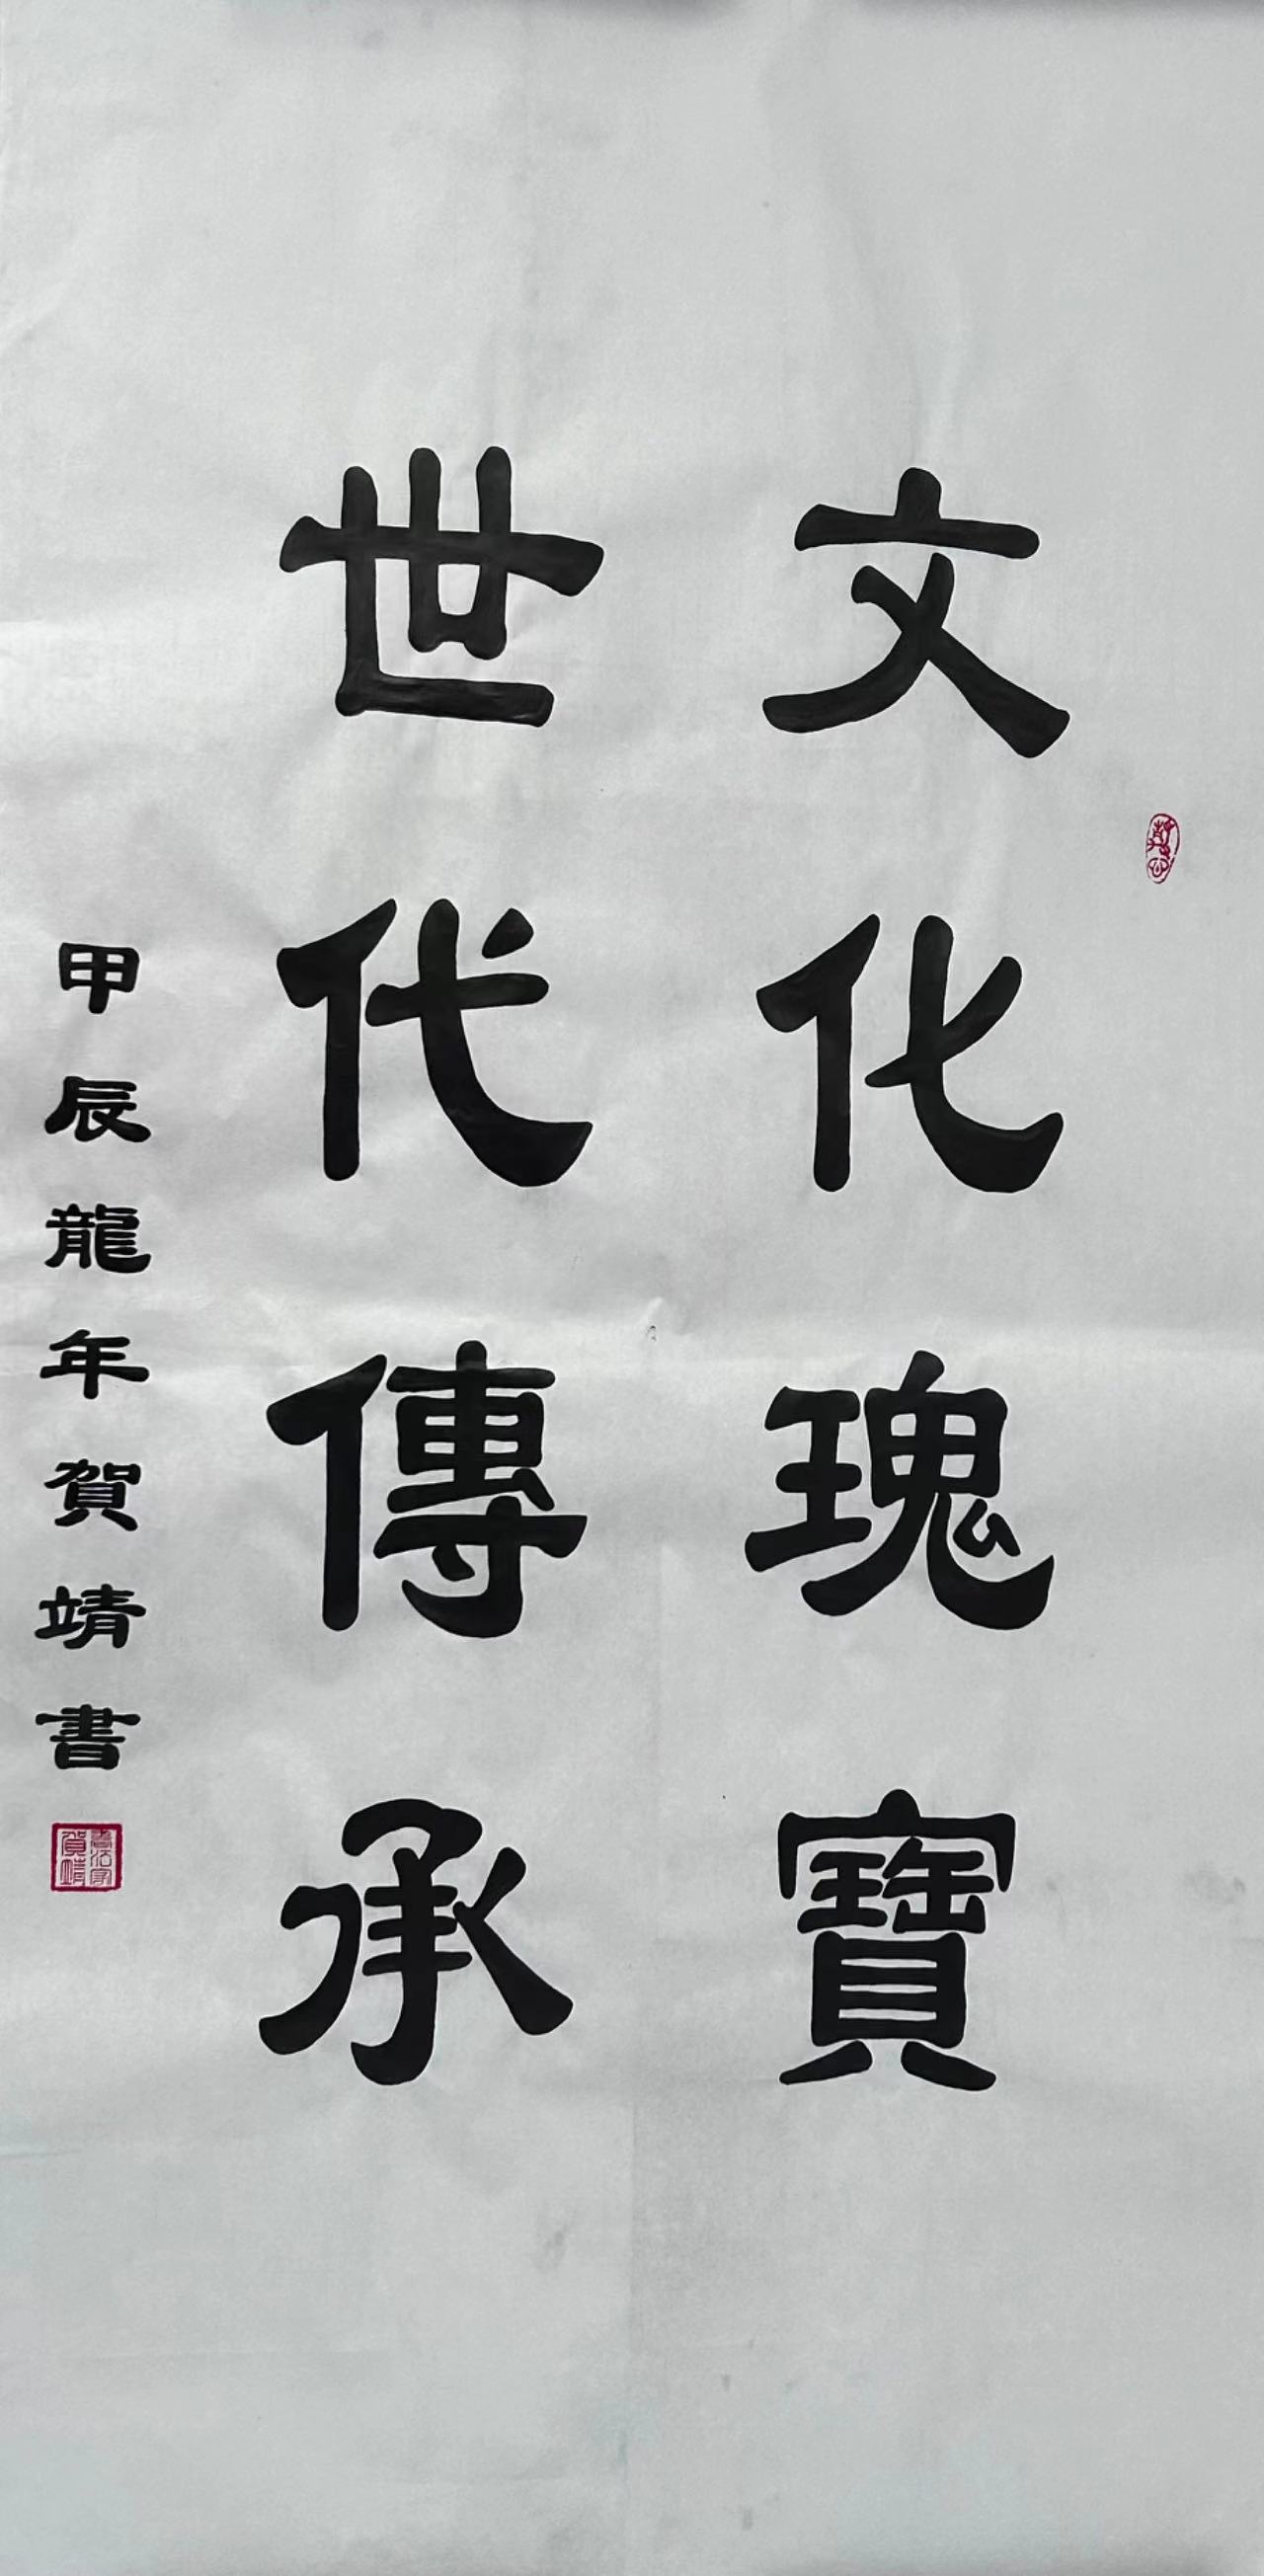 文化瑰寶
世代傳承
甲辰龍年賀靖書
書法家
賀靖